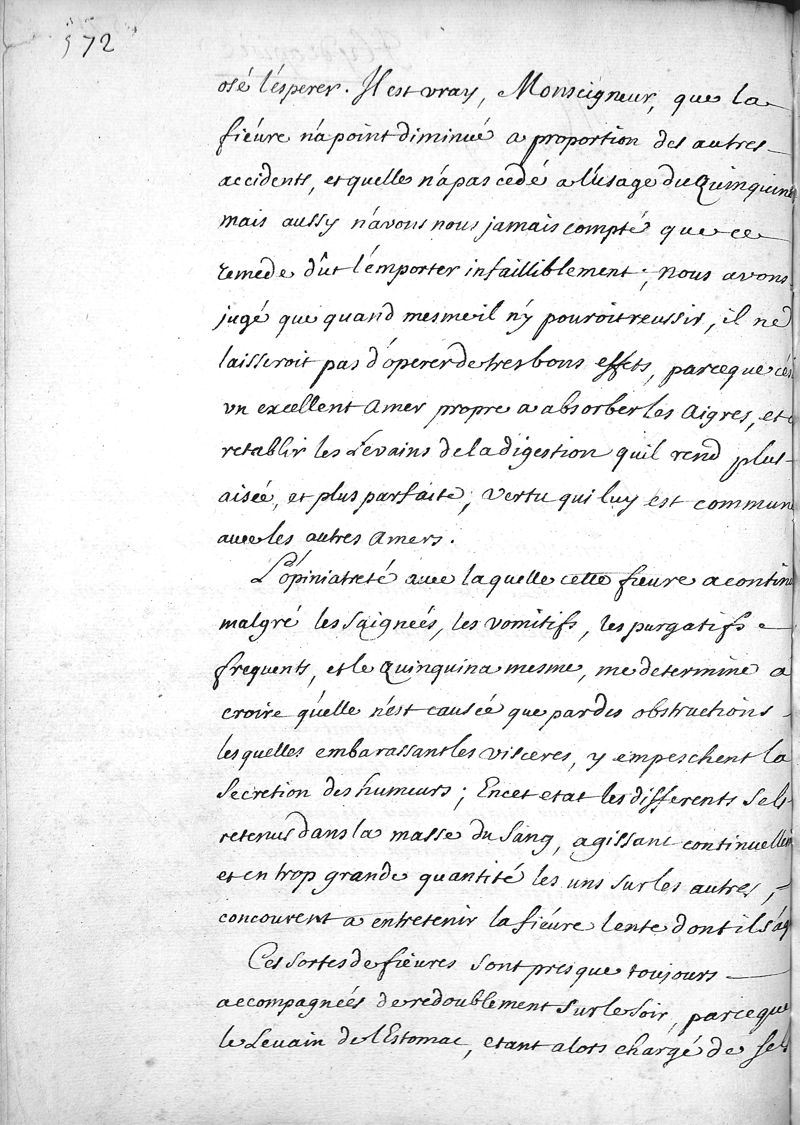 572
osé l'ésperer. Il est vray, Monseigneur, que la
fiéure n'a point diminué a proportion des autres
accidents, et quelle n'a pas cedé a l'usage du Quinquina
mais aussy n'avons nous jamais compté que ce
remede dût l'emporter infailliblement; nous avons
jugé que quand mesme il n'y pouroit reussir, il ne
laisseroit pas d'operer de tres bons effets, parceque c'és
vn excéllent Amer propre a absorber les Aigres, et
retablir les Levains de la digestion quil rend plus
aisée, et plus parfaite, vertu qui luy est commun
auec les autres Amers.
L'opiniatreté auec laquelle cette fieure a contin
malgré les saignées, les vomitifs, les purgatifs
frequents, et le Quinquina mesme, me determine a
croire qu'elle n'est causée que par des obstructions
lesquelles embarassant les visceres, y empeschent la
Secretion des humeurs; En cet etat les differents Sels
retenus dans la masse du Sang, agissant continuellem
et en trop grande quantité les uns sur les autres,
concourent a entretenir la fiéure lente dont il s'ag
Ces sortes de fieures sont presque toujours
accompagnées de redoublement sur le soir, parceque
le Levain de l'Estomac, etant alors chargé de sels